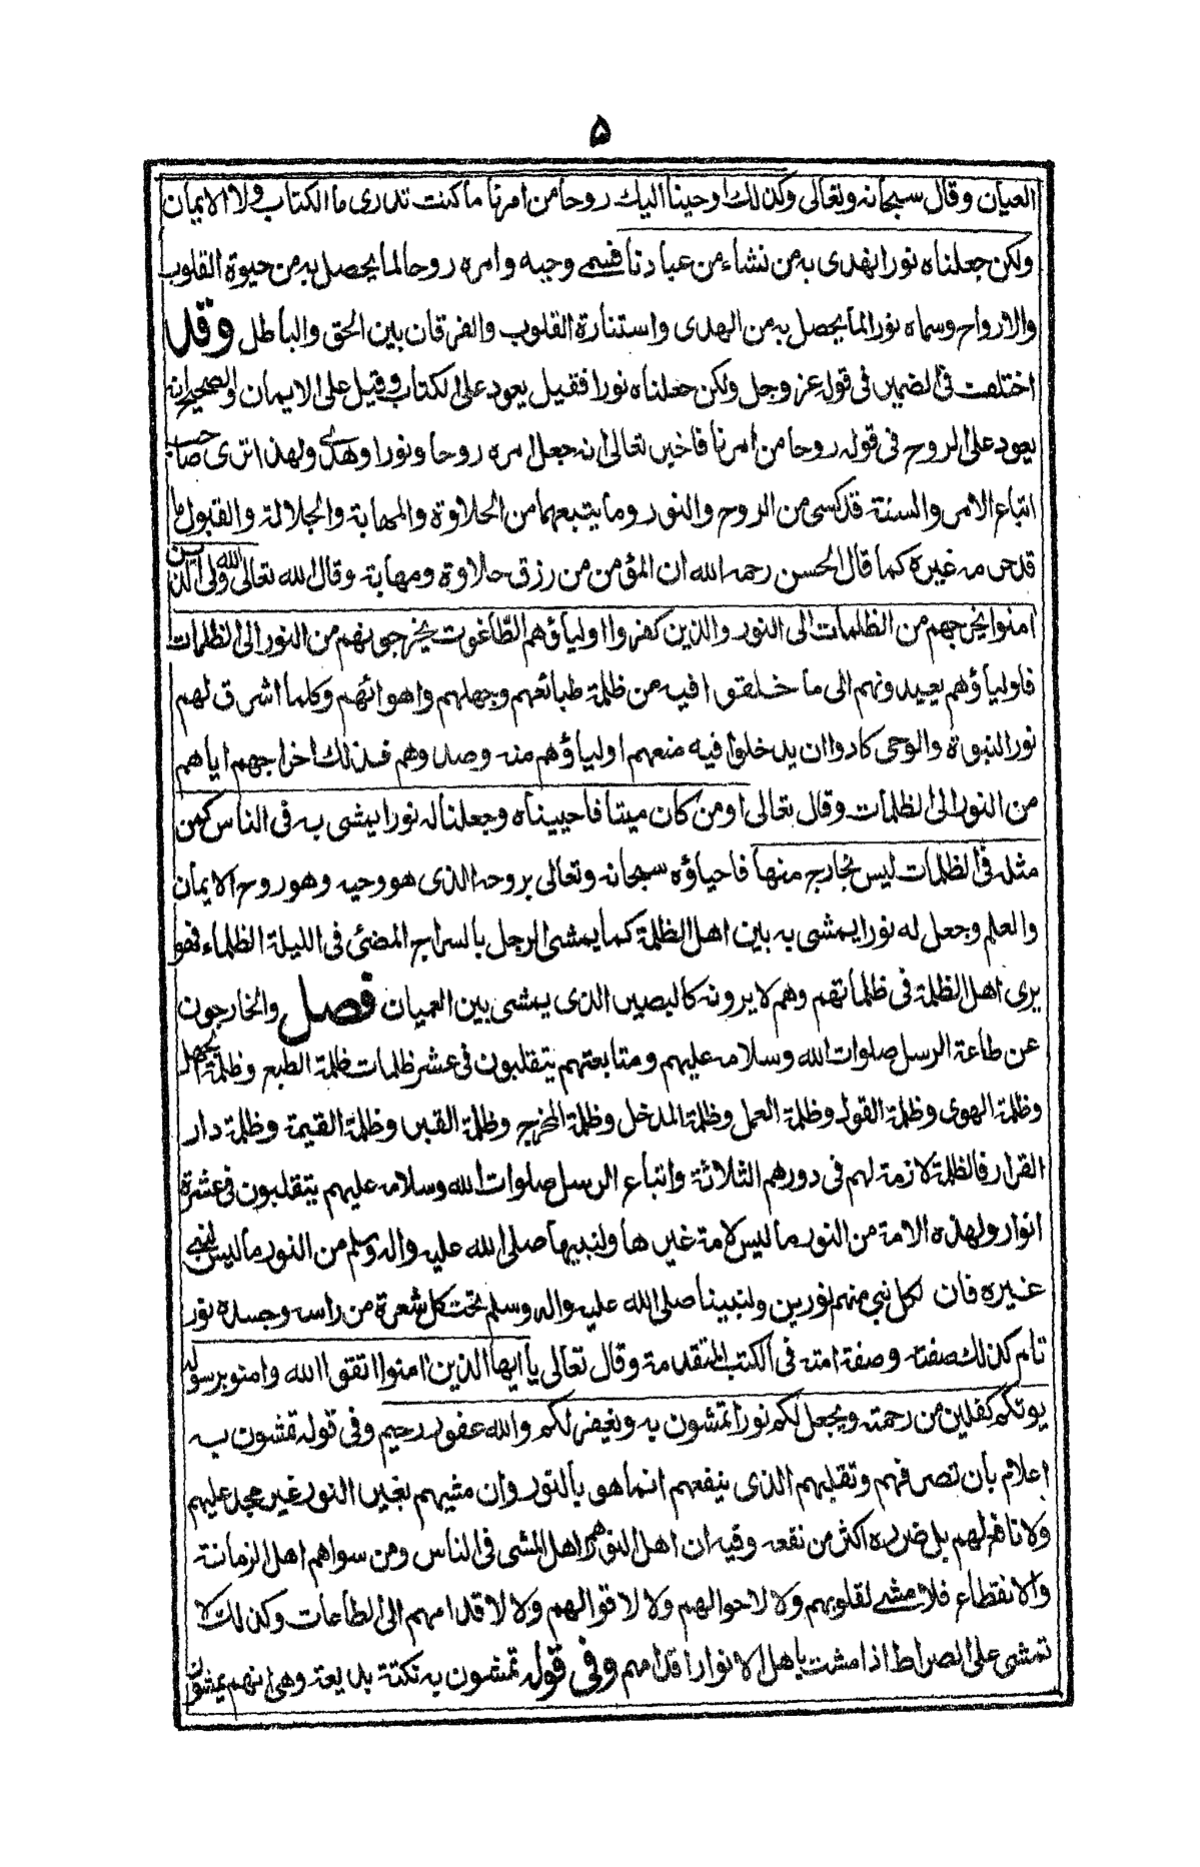 ۵
العيان وقال سبحانه وتعالى وكذلك اوحينا اليك روحا من امرنا ما كنت تدرى ما الكتاب ولا الايمان
ولكن جعلناه نورا نهدى به من نشاء من عبادنا فسمى وحيه وامره روحا لما يحصل به من حيوة القلوب
والارواح وسماه نورا لما يحصل به من الهدى واستنارة القلوب والفرقان بين الحق والباطل وقد
اختلفت فى الضمير فى قوله عز وجل ولكن جعلناه نورا فقيل يعود على الكتاب وقيل على الايمان والصحيح انه
يعود على الروح فى قوله روحا من امرنا فاخبر تعالى انه جعل امره روحا ونورا وهدى ولهذا ترى صاحب
اتباع الامر والسنة قد كسى من الروح والنور وما يتبعهما من الحلاوة والمهابة والجلالة والقبول ما
قد حرمه غيره كما قال الحسن رحمه الله ان المؤمن من رزق حلاوة ومهابة وقال الله تعالى الله ولى الذين
امنوا يخرجهم من الظلمات الى النور والذين كفروا اولياؤهم الطّاغوت يخرجونهم من النور الى الظلمات
فاولياؤهم يعيدونهم الى ما خلقوا فيه من ظلمة طبائعهم وجهلهم واهوائهم وكلما اشرق لهم
نور النبوة والوحى كادوا ان يدخلوا فيه منعهم اولياؤهم منه وصدوهم فذلك اخراجهم اياهم
من النور الى الظلمات وقال تعالى اومن كان ميتا فاحييناه وجعلنا له نورا يمشى به فى الناس كمن
مثله فى الظلمات ليس بخارج منها فاحياؤه سبحانه وتعالى بروحه الذى هو وحيه وهو روح الايمان
والعلم وجعل له نورا يمشى به بين اهل الظلمة كما يمشى الرجل بالسراج المضئ فى الليلة الظلماء فهو
يرى اهل الظلمة فى ظلماتهم وهم لا يرونه كالبصير الذى يمشى بين العميان فصل والخارجون
عن طاعة الرسل صلوات الله وسلامه عليهم ومتابعتهم يتقلبون فى عشر ظلمات ظلمة الطبع وظلمة الجهل
وظلمة الهوى وظلمة القول وظلمة العمل وظلمة المدخل وظلمة المخرج وظلمة القبر وظلمة القيمة وظلمة دار
القرار فالظلمة لازمة لهم فى دورهم الثلاثة واتباع الرسل صلوات الله وسلامه عليهم يتقلبون فى عشرة
انوار ولهذه الامة من النور ما ليس لامة غيرها ولنبيها صلى الله عليه واله وسلم من النور ما ليس لنبى
غيره فان لكل نبى منهم نورين ولنبينا صلى الله عليه واله وسلم تحت كل شعرة من راسه وجسده نور
تام كذلك صفته وصفة امته فى الكتب المتقدمة وقال تعالى يا ايها الذين امنوا اتقوا الله وامنو برسوله
يوتكم كفلين من رحمته ويجعل لكم نورا تمشون به ويغفر لكم والله غفور رحيم وفى قوله تمشون به
اعلام بان تصرفهم وتقلبهم الذى ينفعهم انما هو بالنور وان مشيهم بغير النور غير مجد عليهم
ولا نافع لهم بل ضرره اكثر من نفعه وفيه ان اهل النور هم اهل المشى فى الناس ومن سواهم اهل الزمانة
والانقطاع فلا مشى لقلوبهم ولا لاحوالهم ولا لاقوالهم ولا لاقدامهم الى الطاعات وكذلك لا
تمشى على الصراط اذا مشت باهل الانوار اقدامهم وفى قوله تمشون به نكتة بديعة وهى انهم يمشون